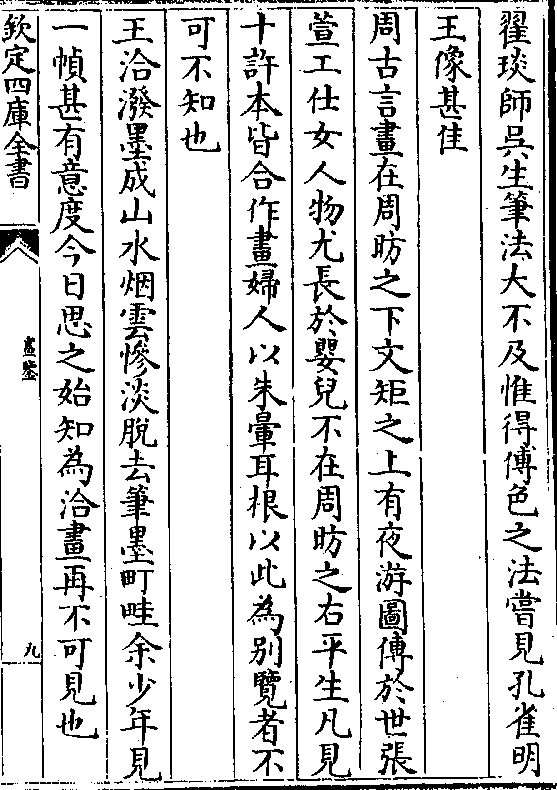 翟琰師吳生筆法大不及惟得傅色之法嘗見孔雀明
王像甚佳
周古言畫在周昉之下文矩之上有夜游圖傳於世張
萱工仕女人物尤長於嬰兒不在周昉之右平生凡見
十許本皆合作畫婦人以朱暈耳根以此為别覽者不
可不知也
王洽潑墨成山水烟雲慘淡脫去筆墨町畦余少年見
一幀甚有意度今日思之始知為洽畫再不可見也
欽定四庫全書
畫鑒
九